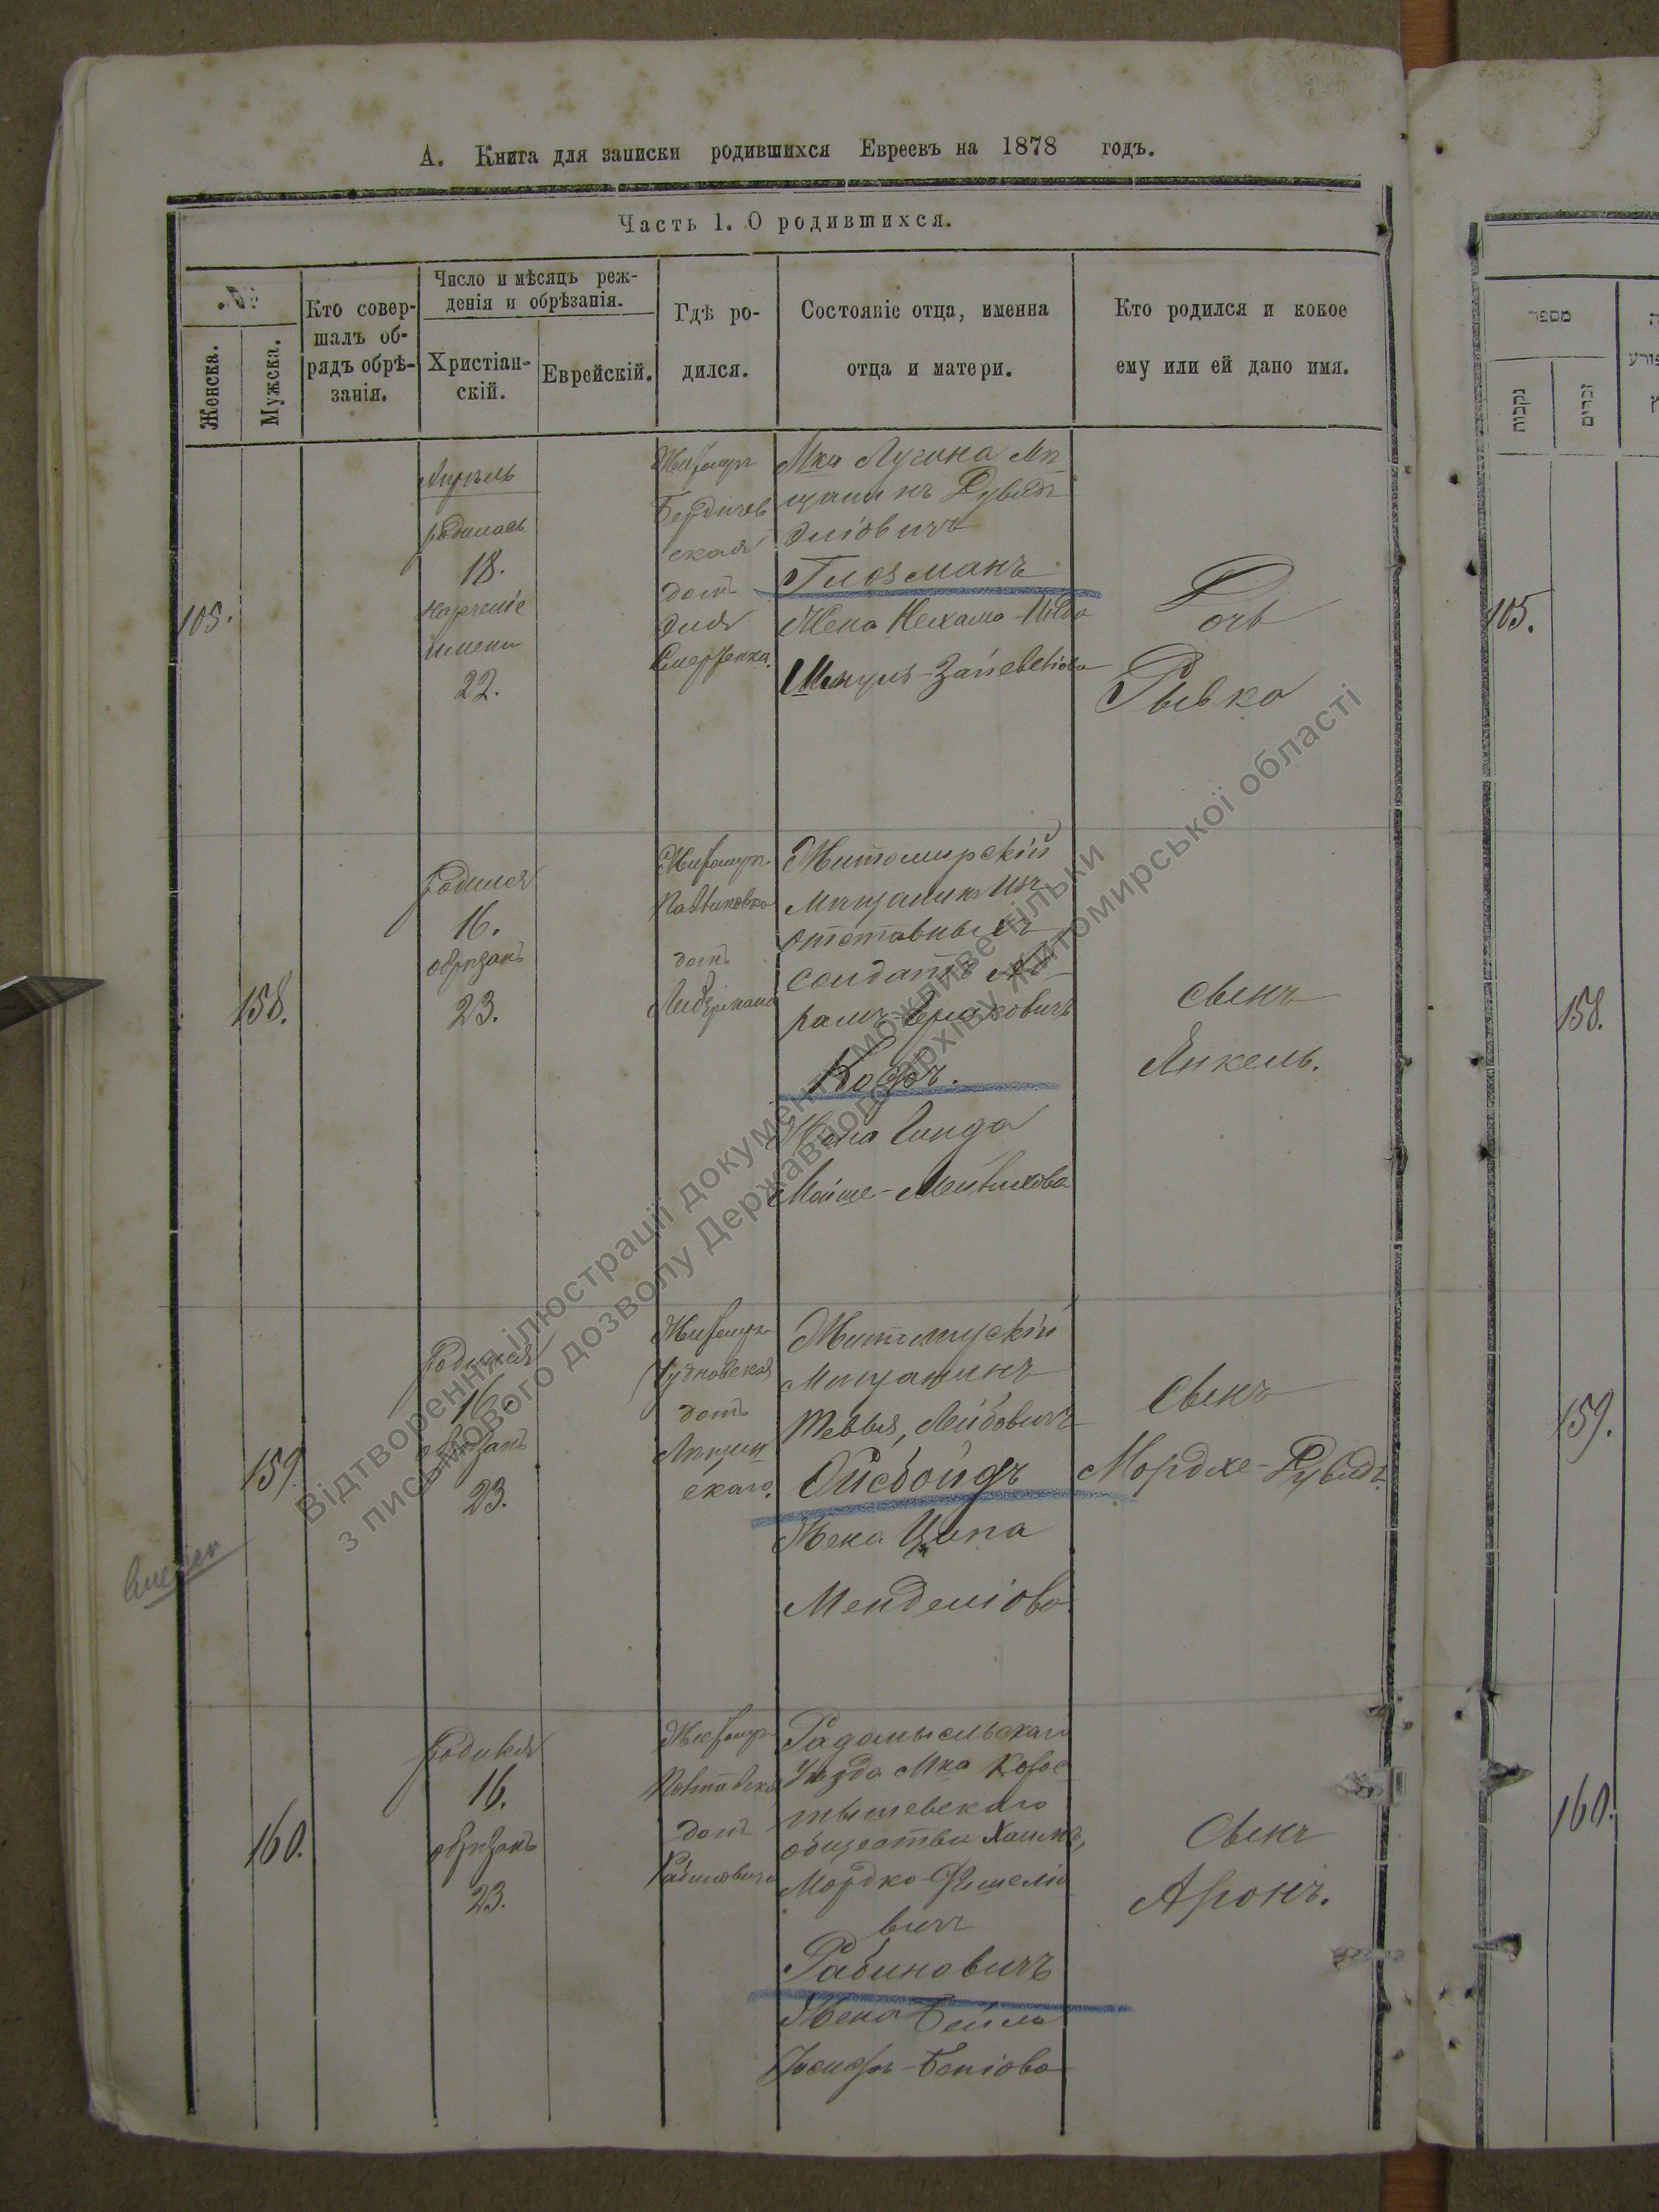 А. Книга для записки родившихся Евреевъ на 1878 годъ.
Часть 1. О родившихся.
№
Женска.
Мужска.
Кто совер-
шалъ об-
рядъ обрѣ-
занія.
Число и мѣсяцъ реж-
денія и обрѣзанія.
Христіан-
скій.
Еврейскій.
Гдѣ ро-
дился.
Состояніе отца, именна
отца и матери.
Кто родился и кокое
ему или ей дано имя.
105.
Апрѣль
родилась
18.
Нареченіе
имени
22.
Житомир
Бердичев
ская
домъ
Мка Лугина Мѣ
щанинъ Дувидъ
Эліовичъ
Глозманъ
Жена Нехама-
Дочь
Рывка
158.
родился
16.
обрѣзанъ
23.
Житомиръ
домъ
Либермана
Житомирскій
мѣщанинъ изъ
отставныхъ
солдатъ Ав-
рамъ
Жена
Мойше-
сынъ
Янкель.
159.
Родился
16.
обрѣзанъ
23.
Житомиръ
Чудновская
домъ
скаго.
Житомирскій
Мѣщанинъ
Тевья, Лейбовичъ
Ойсбойдъ
Жена Ципа
Менделіова
Сынъ
Мордхе-Дувидъ.
160.
Родился
16.
обрѣзанъ
23.
Житомир
домъ
Рабиновича
Радомысльскаго
Уѣзда Мка Корос
тышевскаго
общества Хаимъ,
Мордко-Фишеліо
вичъ
Рабиновичъ
Жена Бейла
Іосифъ-Беніова
Сынъ
Аронъ.
מספר
נקבות
זכרים
105.
158.
159.
160.
Відтворення ілюстрації документу можливе тільки
з письмового дозволу Державного архіву Житомирської області